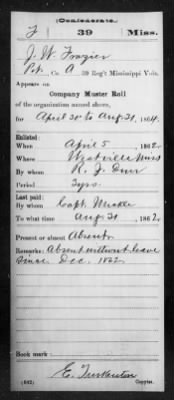 (Confederate.)
F 39 Miss.
J. W. Frazier
Pvt., Co. A, 39 Reg't Mississippi Vols.
Appears on
Company Muster Roll
of the organization named above,
for April 30 to Aug 31, 1864.
Enlisted:
When April 5, 1862
Where Westville Miss
By whom R. J. Durr
Period 3 yrs.
Last paid:
By whom Capt.
To what time Aug 31, 1862
Present or absent Absent
Remarks: Absent without leave
since Dec. 1862.
Book mark:
(642) Copyist.